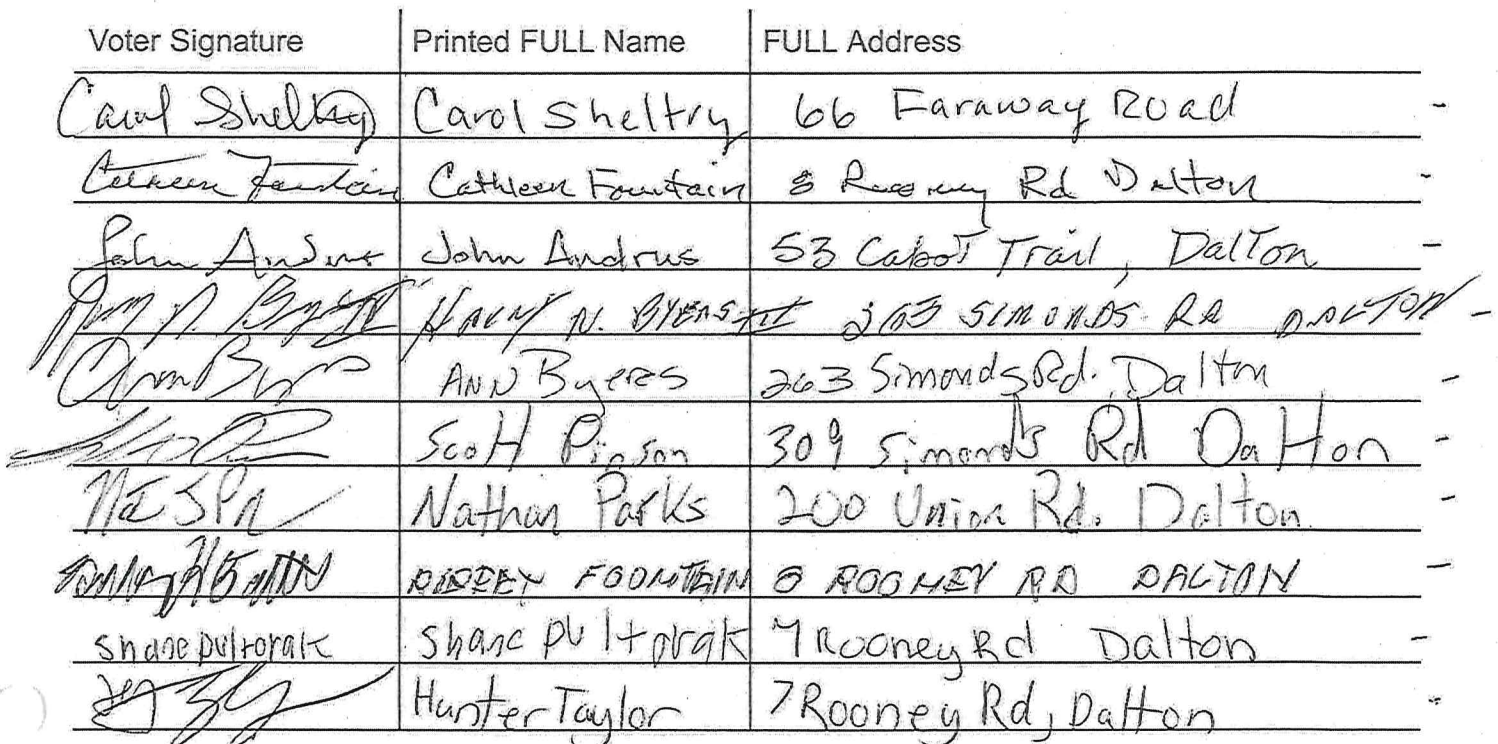 Voter Signature Printed FULL Name FULL Address
Carol Sheltry Carol Sheltry 66 Faraway Road -
Cathleen Fountain Cathleen Fountain 8 Rooney Rd Dalton -
John Andrus John Andrus 53 Cabot Trail, Dalton -
N. BYERS III 263 SIMONDS RD DALTON -
Ann Byers ANN Byers 263 Simonds Rd. Dalton -
Scott Pinson 309 Simonds Rd Dalton -
Nathan Parks 200 Union Rd. Dalton -
FOUNTAIN 8 ROONEY RD DALTON -
shane pultorak shane pultorak 7 Rooney Rd Dalton -
Hunter Taylor 7 Rooney Rd, Dalton -